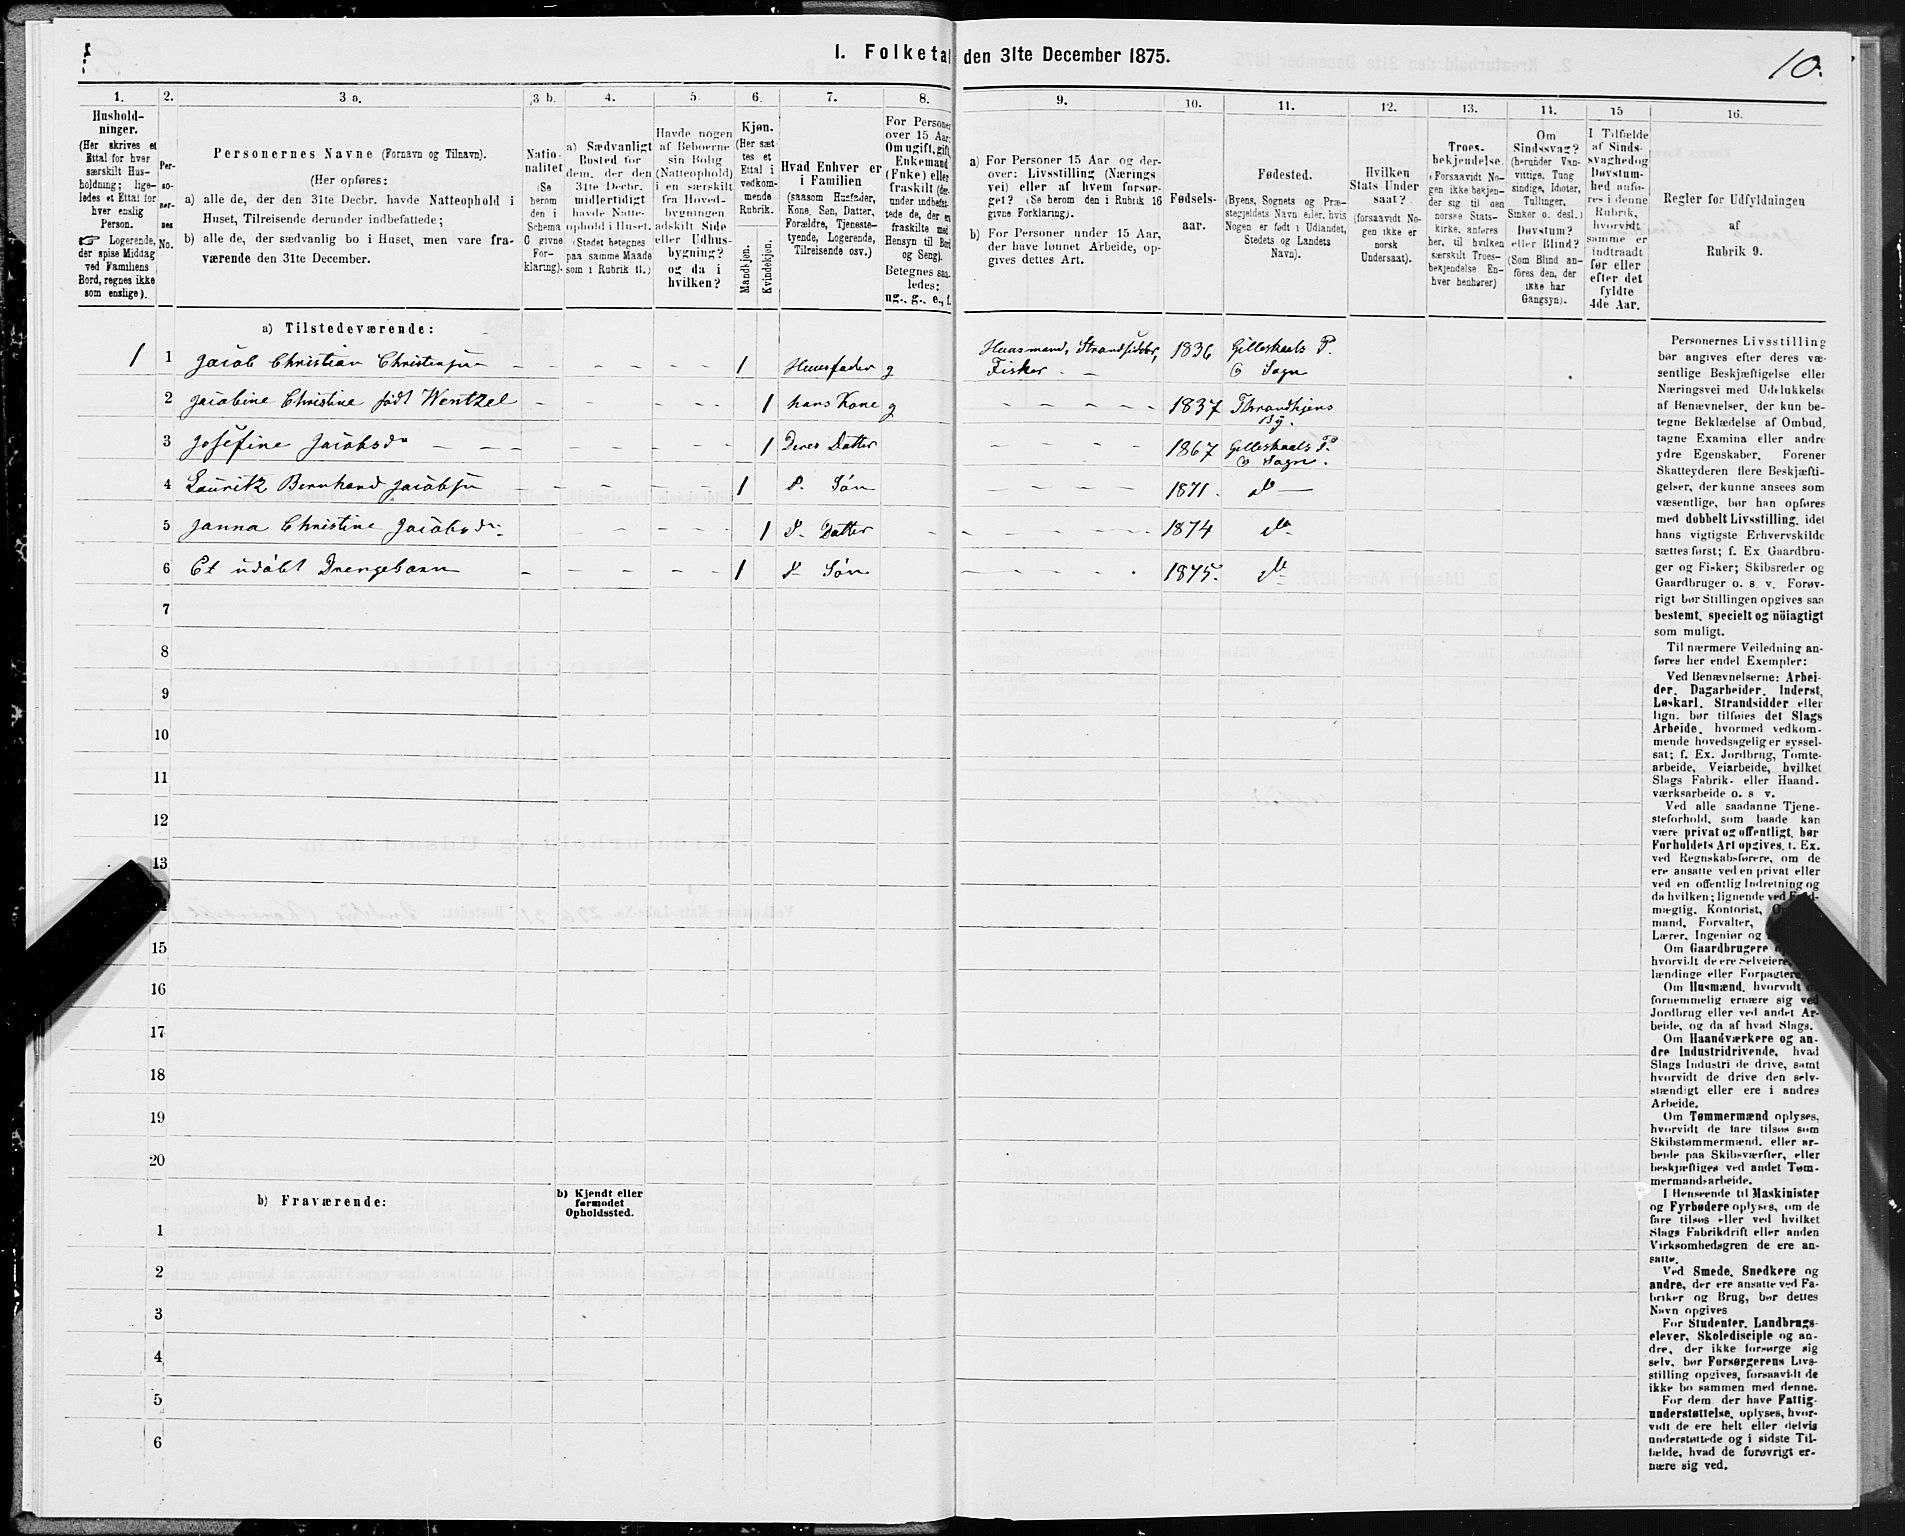 I. Folketal den 31te December 1875.
10.
1.
2.
3 a.
3 b.
4.
5.
6.
7.
8.
9.
10.
11.
12.
13.
14.
15
16.
Hushold-
ninger.
(Her skrives et
Ettal for hver
særskilt Hus-
holdning; lige-
ledes et Ettal for
hver enslig
Person.
☞ Logerende,
der spise Middag
ved Familiens
Bord, regnes ikke
som enslige).
Per-
so-
ner-
nes
No.
Personernes Navne (Fornavn og Tilnavn).
(Her opføres:
a) alle de, der den 31te Decbr. havde Natteophold i
Huset, Tilreisende derunder indbefattede;
b) alle de, der sædvanlig bo i Huset, men vare fra-
værende den 31te December.
Natio-
nalitet
(Se
herom
den i
Schema
C givne
For-
klaring).
a) Sædvanligt
Bosted for
dem, der den
31te Decbr.
midlertidigt
havde Natte-
ophold i Huset.
(Stedet betegnes
paa samme Maade
som i Rubrik 11.)
Havde nogen
af Beboerne
sin Bolig
(Natteophold)
i en særskilt
fra Hoved-
bygningen
adskilt Side
eller Udhus-
bygning?
og da i
hvilken?
Kjøn.
(Her sæt-
tes et
Ettal i
vedkom-
mende
Rubrik.
Mandkjøn.
Kvindekjøn.
Hvad Enhver er
i Familien
(saasom Husfader,
Kone, Søn, Datter,
Forældre, Tjeneste-
tyende, Logerende,
Tilreisende osv.)
For Personer
over 15 Aar:
Om ugift, gift,
Enkemand
(Enke) eller
fraskilt (der-
under indbefat-
tede de, der ere
fraskilte med
Hensyn til Bord
og Seng).
Betegnes saa-
ledes:
ug., g., e., f.
a) For Personer 15 Aar og der-
over: Livsstilling (Nærings
vei) eller af hvem forsør-
get? (Se herom den i Rubrik 16
givne Forklaring).
b) For Personer under 15 Aar,
der have lønnet Arbeide, op-
gives dettes Art.
Fødsels-
aar.
Fødested.
(Byens, Sognets og Præ-
stegjeldets Navn eller, hvis
Nogen er født i Udlandet,
Stedets og Landets
Navn).
Hvilken
Stats Under
saat?
(forsaavidt No-
gen ikke er
norsk
Undersaat).
Troes-
bekjendelse.
(Forsaavidt No-
gen ikke bekjen-
der sig til den
norske Stats-
kirke, anføres
her, til hvilken
særskilt Troes-
bekjendelse En-
hver henhører)
Om
Sindssvag?
(herunder Van-
vittige, Tung
sindige, Idioter,
Tullinger,
Sinker o. desl.)
Døvstum?
eller Blind?
(Som Blind an-
føres den, der
ikke har
Gangsyn).
I Tilfælde
af Sinds-
svaghed og
Døvstum-
hed anfø-
res i denne
Rubrik,
hvorvidt
samme er
indtraadt
før eller
efter det
fyldte
4de Aar.
Regler for Udfyldningen
af
Rubrik 9.
a) Tilstedeværende:
1 1 Jacob Christian Christensen 1 Huusfader g Huusmand, Strandsidder, Fisker 1836 Gilleskaals P. & Sogn
2 Jacobine Christine født Wentzel 1 hans Kone g 1837 Throndhjens By.
3 Josefine Jacobsdr 1 Deres Datter 1867 Gilleskaals P. & Sogn.
4 Lauritz Bernhard Jacobsen 1 D. Søn 1871. do
5 Janna Christine Jacobsdr. 1 D. Datter 1874 do
6 Et udöbt Drengebarn 1 D. Søn 1875. do
7
8
9
10
11
12
13
14
15
16
17
18
19
20
b) Fraværende:
b) Kjendt eller
formodet
Opholdssted.
1
2
3
4
5
6
Personernes Livsstilling
bør angives efter deres væ-
sentlige Beskjæftigelse eller
Næringsvei med Udelukkelse
af Benævnelser, der kun be-
tegne Beklædelse af Ombud,
tagne Examina eller andre
ydre Egenskaber. Forener
Skatteyderen flere Beskjæfti-
gelser, der kunne ansees som
væsentlige, bør han opføres
med dobbelt Livsstilling, idet
hans vigtigste Erhvervskilde
sættes først; f. Ex. Gaardbru-
ger og Fisker; Skibsreder og
Gaardbruger o. s. v. Forøv-
rigt bør Stillingen opgives saa
bestemt, specielt og nöiagtigt
som muligt.
Til nærmere Veiledning an-
føres her endel Exempler:
Ved Benævnelserne: Arbei-
der, Dagarbeider, Inderst,
Løskarl, Strandsidder eller
lign. bør tilføies det Slags
Arbeide, hvormed vedkom-
mende hovedsagelig er syssel-
sat; f. Ex. Jordbrug, Tomte-
arbeide, Veiarbeide, hvilket
Slags Fabrik- eller Haand-
værksarbeide o. s v.
Ved alle saadanne Tjene-
steforhold, som baade kan
være privat og offentligt, bør
Forholdets Art opgives, t. Ex.
ved Regnskabsførere, om de
ere ansatte ved en privat eller
ved en offentlig Indretning og
da hvilken; lignende ved
mægtig, Kontorist,
mand, Forvalter,
Lærer, Ingeniør og
Om Gaardbrugere
hvorvidt de ere Selveiere,
lændinge eller Forpagtere
Om Husmænd, hvorvidt
fornemmelig ernære sig ved
Jordbrug eller ved andet Ar-
beide, og da af hvad Slags.
Om Haandværkere og an-
dre Industridrivende, hvad
Slags Industri de drive, samt
hvorvidt de drive den selv-
stændigt eller ere i andres
Arbeide.
Om Tømmermænd oplyses,
hvorvidt de fare tilsøs som
Skibstømmermænd, eller ar-
beide paa Skibsværfter, eller
beskjæftiges ved andet Tøm-
mermandsarbeide.
I Henseende til Maskinister
og Fyrbødere oplyses, om de
fare tilsøs eller ved hvilket
Slags Fabrikdrift eller anden
Virksomhedsgren de ere an-
satte.
Ved Smede, Snedkere og
andre, der ere ansatte ved Fa-
briker og Brug, bør dettes
Navn opgives
For Studenter, Landbrugs-
elever, Skoledisciple og an-
dre, der ikke forsørge sig
selv, bør Forsørgerens Livs-
stilling opgives, forsaavidt de
ikke bo sammen med denne.
For dem, der have Fattig-
understøttelse, oplyses, hvor-
vidt de ere helt eller delvis
understøttede og i sidste Til-
fælde, hvad de forøvrigt er-
nære sig ved.